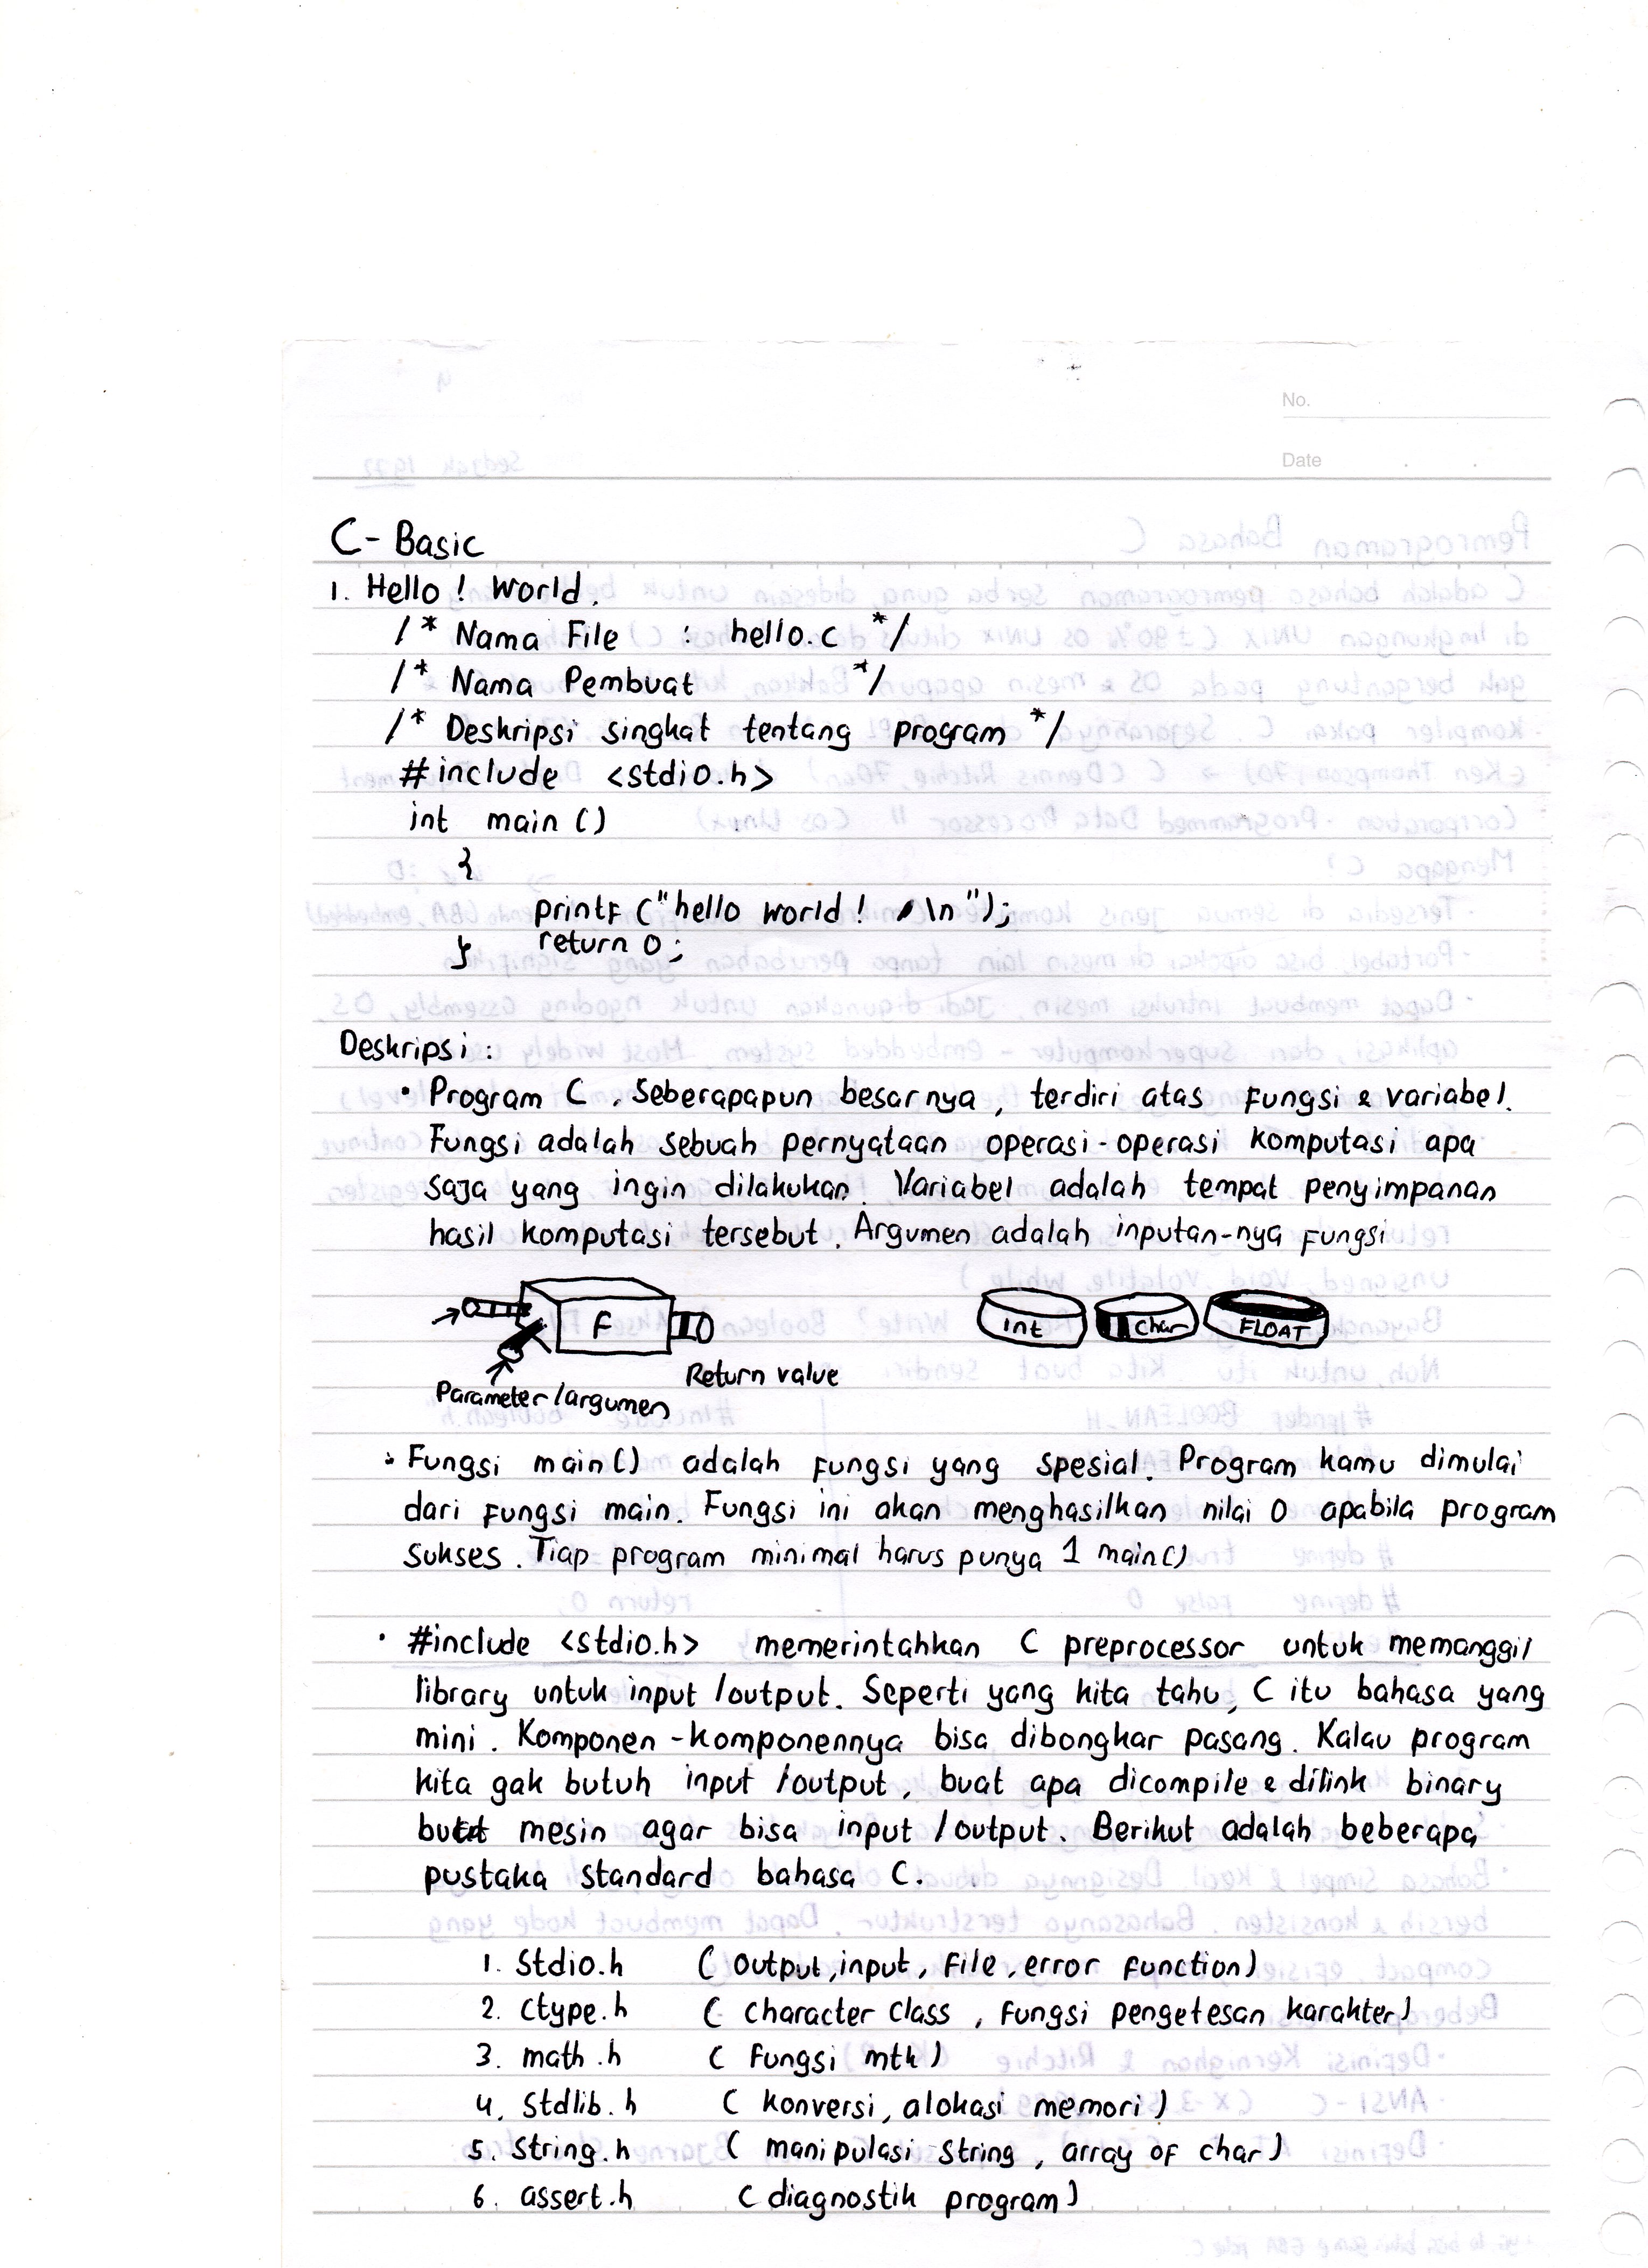 No.
Date
C - Basic
1. Hello! World.
/* Nama File : hello.c */
/* Nama Pembuat */
/* Deskripsi singkat tentang program */
#include <stdio.h>
int main ()
{
printf ("hello world! \n");
return 0;
}
Deskripsi :
• Program C, seberapapun besarnya, terdiri atas fungsi & variabel.
Fungsi adalah sebuah pernyataan operasi-operasi komputasi apa
saja yang ingin dilakukan. Variabel adalah tempat penyimpanan
hasil komputasi tersebut. Argumen adalah inputan-nya fungsi
F
int char FLOAT
Return value
Parameter/argumen
• Fungsi main() adalah fungsi yang spesial. Program kamu dimulai
dari fungsi main. Fungsi ini akan menghasilkan nilai 0 apabila program
sukses. Tiap program minimal harus punya 1 main()
• #include <stdio.h> memerintahkan C preprocessor untuk memanggil
library untuk input/output. Seperti yang kita tahu, C itu bahasa yang
mini. Komponen-komponennya bisa dibongkar pasang. Kalau program
kita gak butuh input/output, buat apa dicompile & dilink binary
buat mesin agar bisa input/output. Berikut adalah beberapa
pustaka standard bahasa C.
1. Stdio.h (output, input, file, error function)
2. Ctype.h (character class, fungsi pengetesan karakter)
3. math.h (fungsi mtk)
4. Stdlib.h (konversi, alokasi memori)
5. String.h (manipulasi string, array of char)
6. assert.h (diagnostik program)